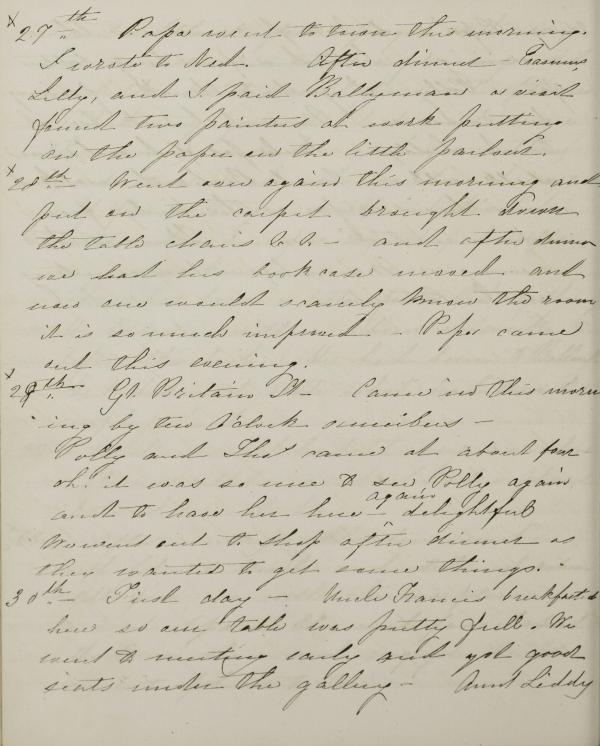 x 27th Papa went to town this morning.
I wrote to Ned. After dinner Erasmus,
Lilly, and I paid Ballyman a visit
found two painters at work putting
on the paper on the little parlour.
x 28th Went over again this morning and
put on the carpet brought down
the table chairs &c &c - and after dinner
we had his bookcase moved and
now one would scarcely know the room
it is so much improved - Papa came
out this evening.
x 29th Gt. Britain St - Came in this morn
ing by ten O'clock omnibus -
Polly and Thos came at about four
oh! it was so nice to see Polly again
again
and to have her here - delightful
We went out to shop after dinner as
they wanted to get some things.
30th First day - Uncle Francis breakfasted
here so our table was pretty full. We
went to meeting early and got good
seats under the gallery - Aunt Liddy